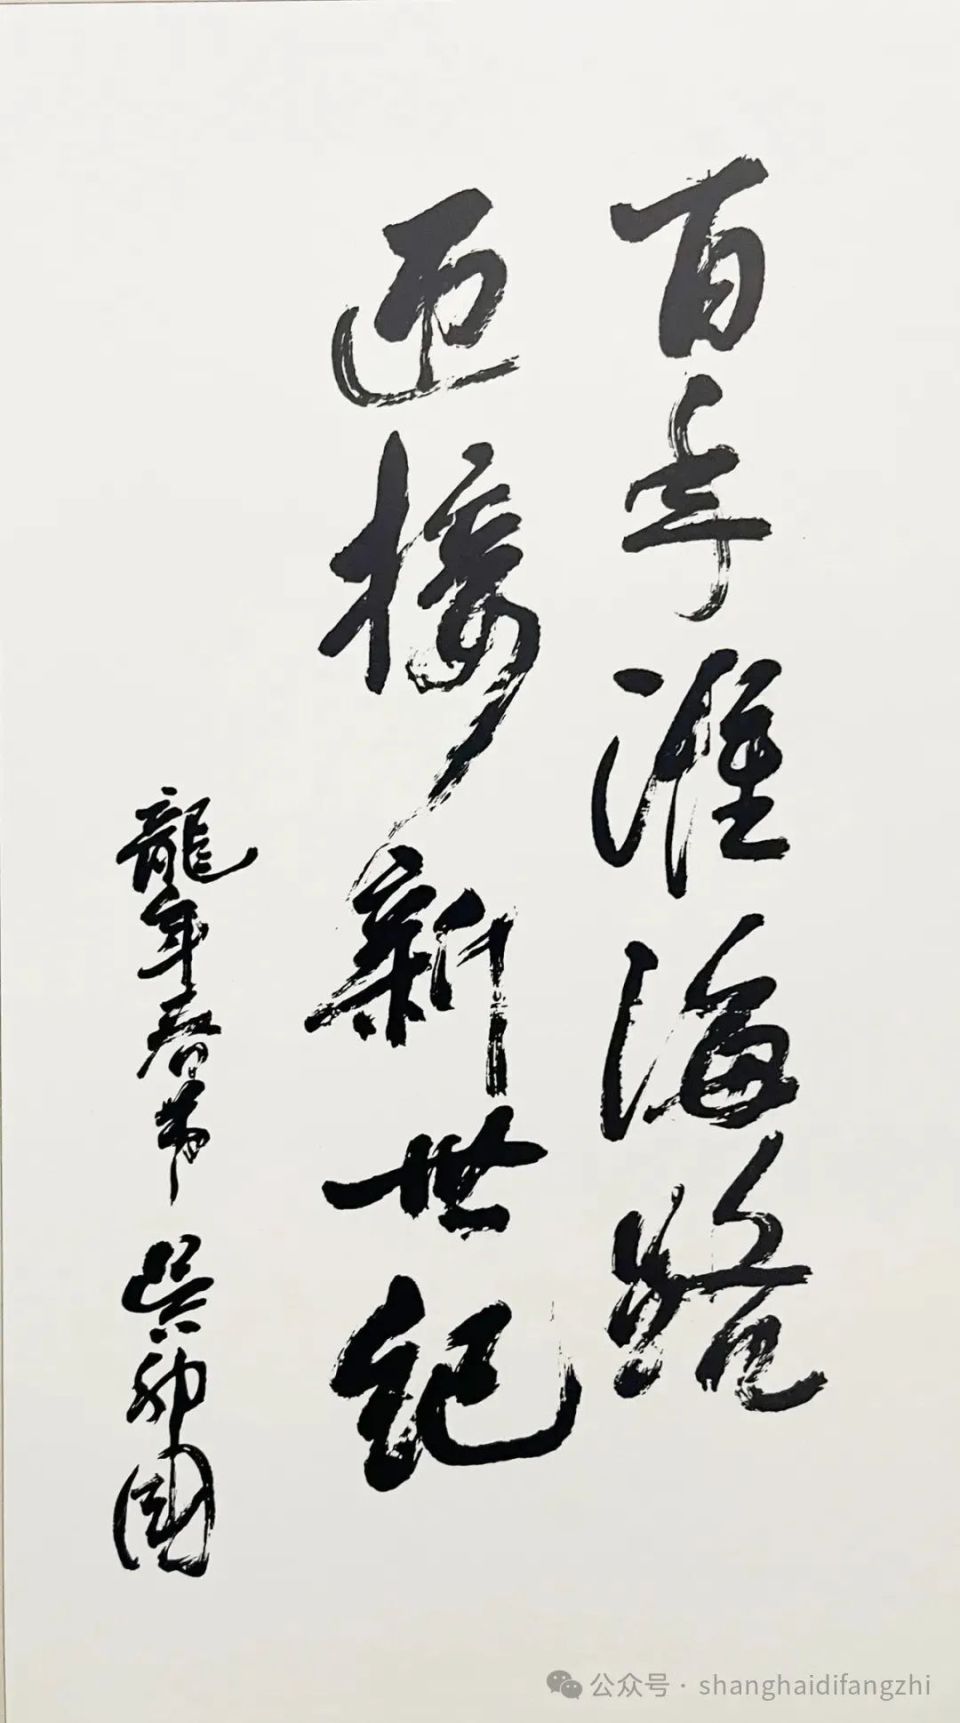 百年淮海路
迎接新世纪
龍年春节 吴
公众号 · shanghaidifangzhi